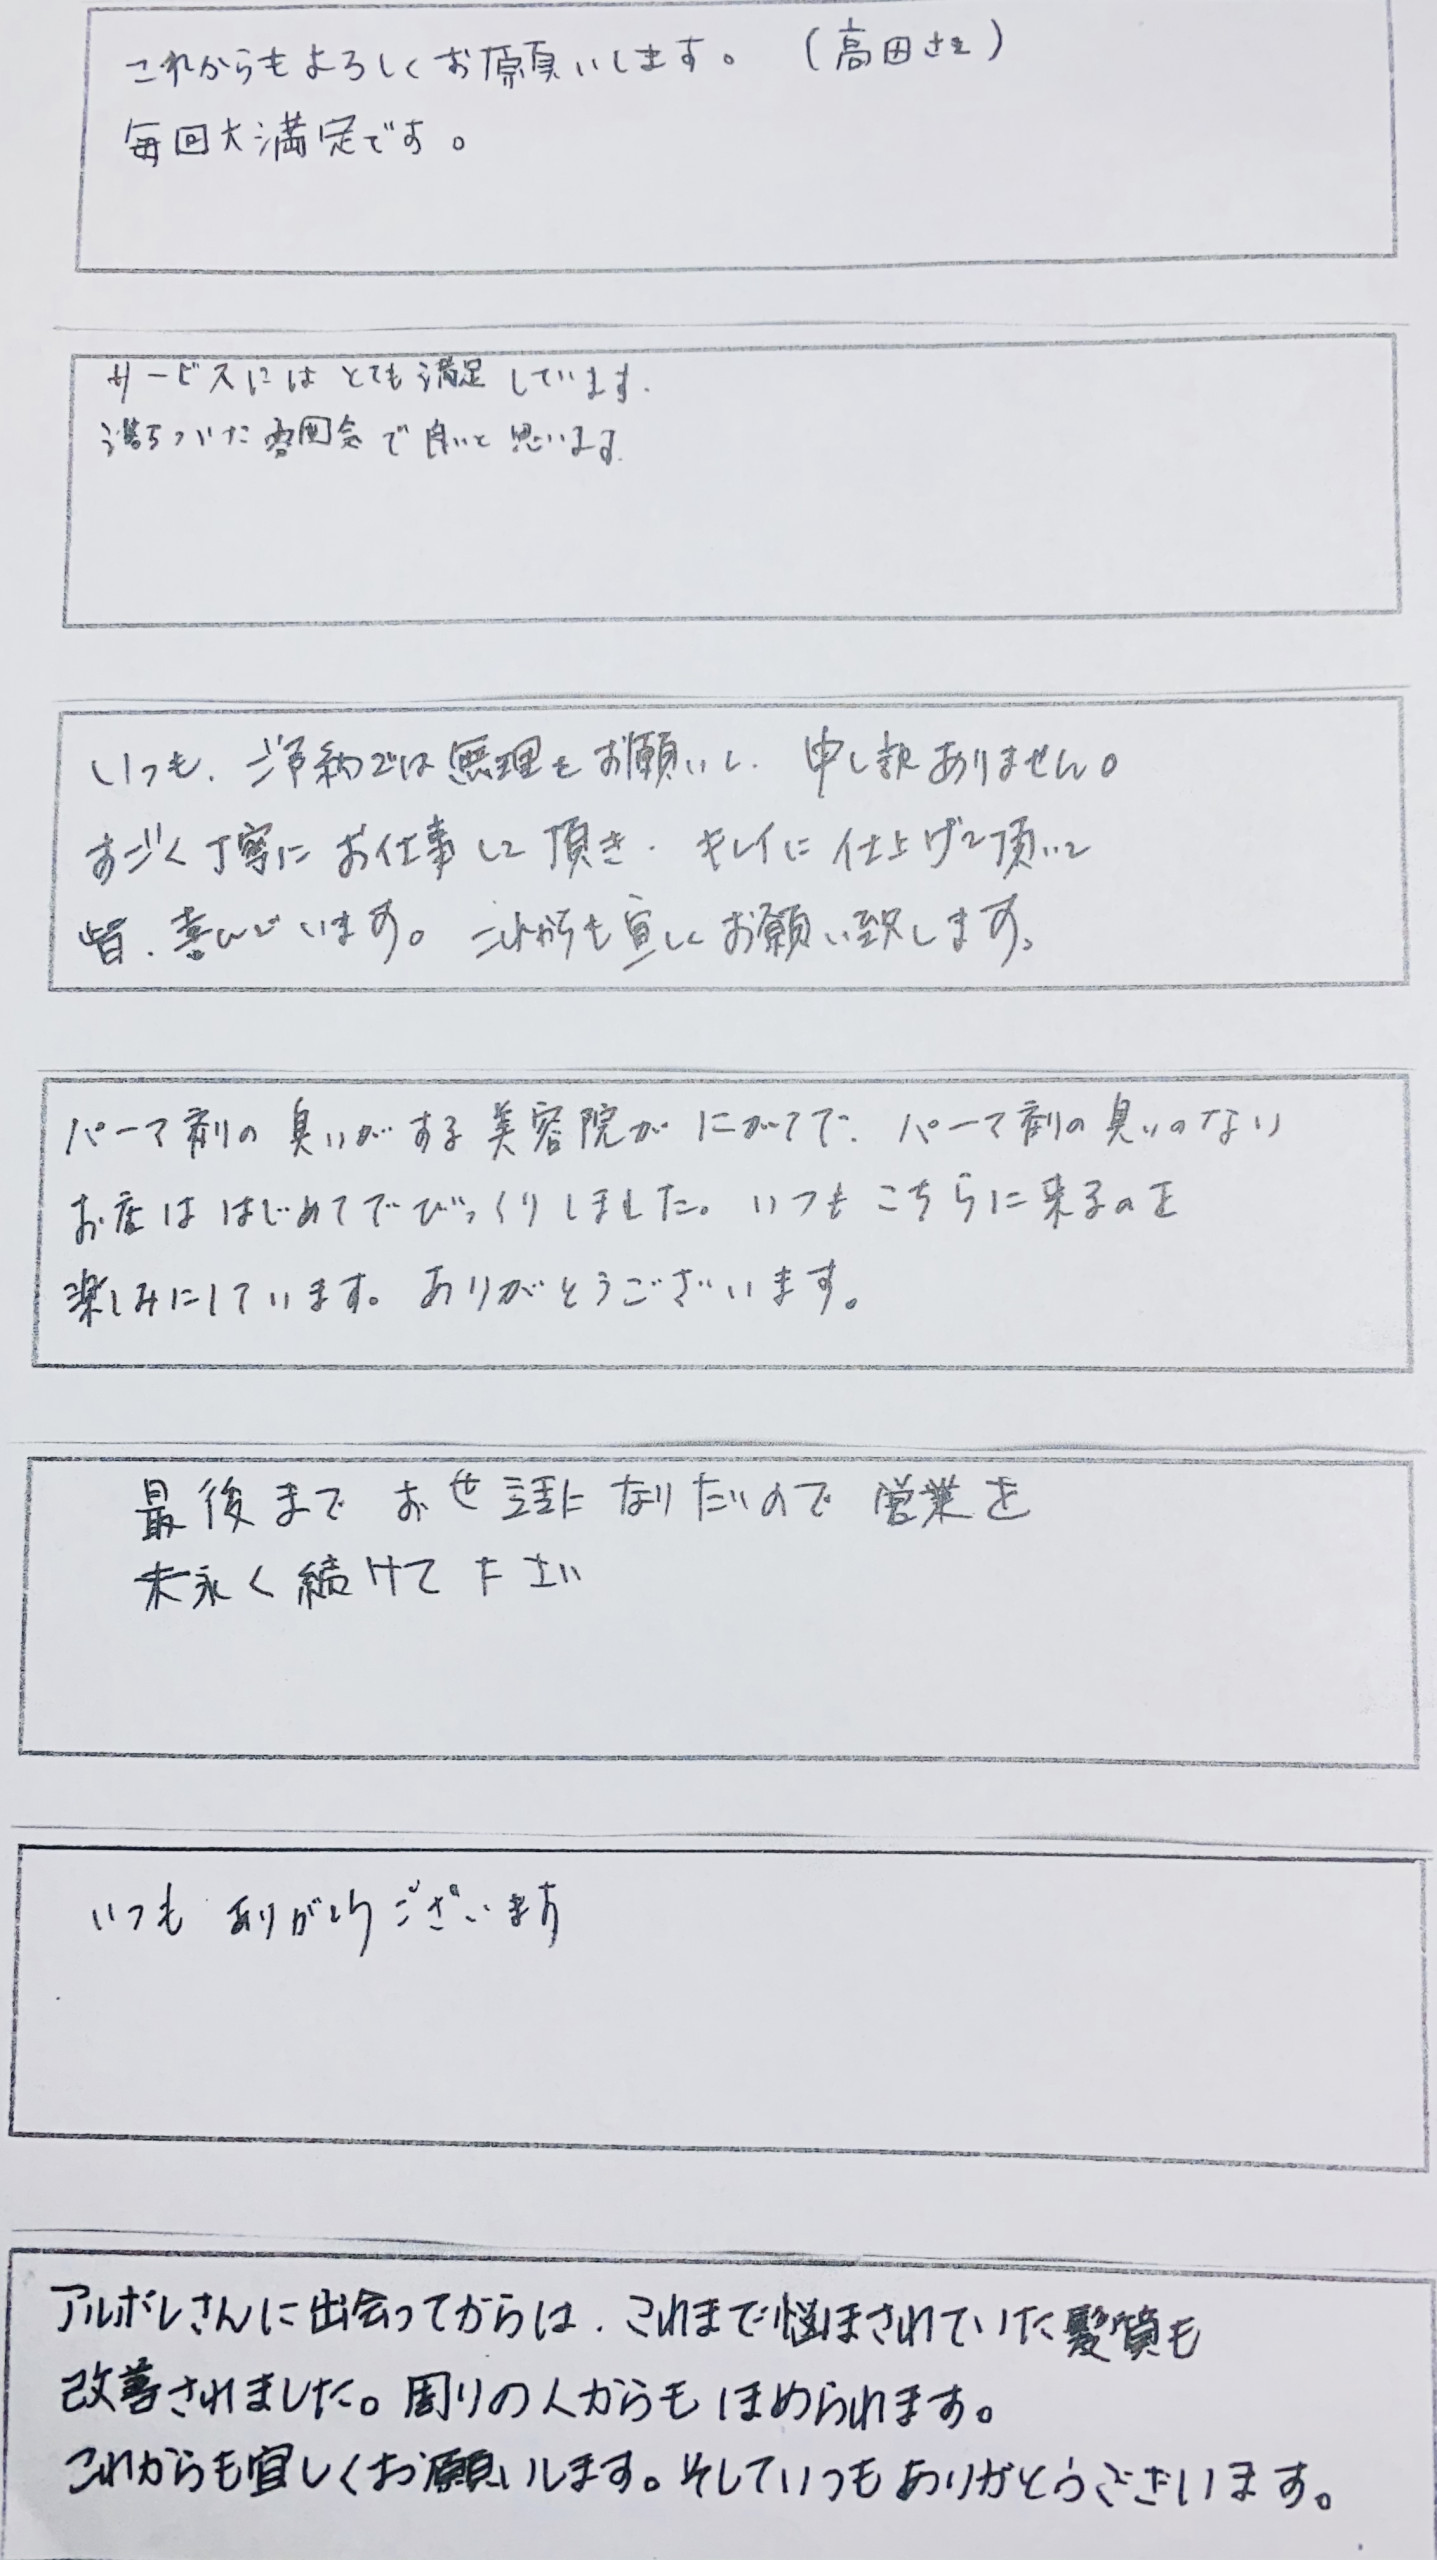 これからもよろしくお願いします。(高田さま)
毎回大満足です。
サービスにはとても満足しています.
落ちついた雰囲気で良いと思います.
いつも、ご予約では無理をお願いし、申し訳ありません。
すごく丁寧にお仕事して頂き、キレイに仕上げて頂いて
皆、喜んでいます。これからも宜しくお願い致します。
パーマ剤の臭いがする美容院がにがてで、パーマ剤の臭いのない
お店ははじめてでびっくりしました。いつもこちらに来るのを
楽しみにしています。ありがとうございます。
最後までお世話になりたいので営業を
末永く続けて下さい
いつもありがとうございます
アルボレさんに出会ってからは、これまで悩まされていた髪質も
改善されました。周りの人からもほめられます。
これからも宜しくお願いします。そしていつもありがとうございます。